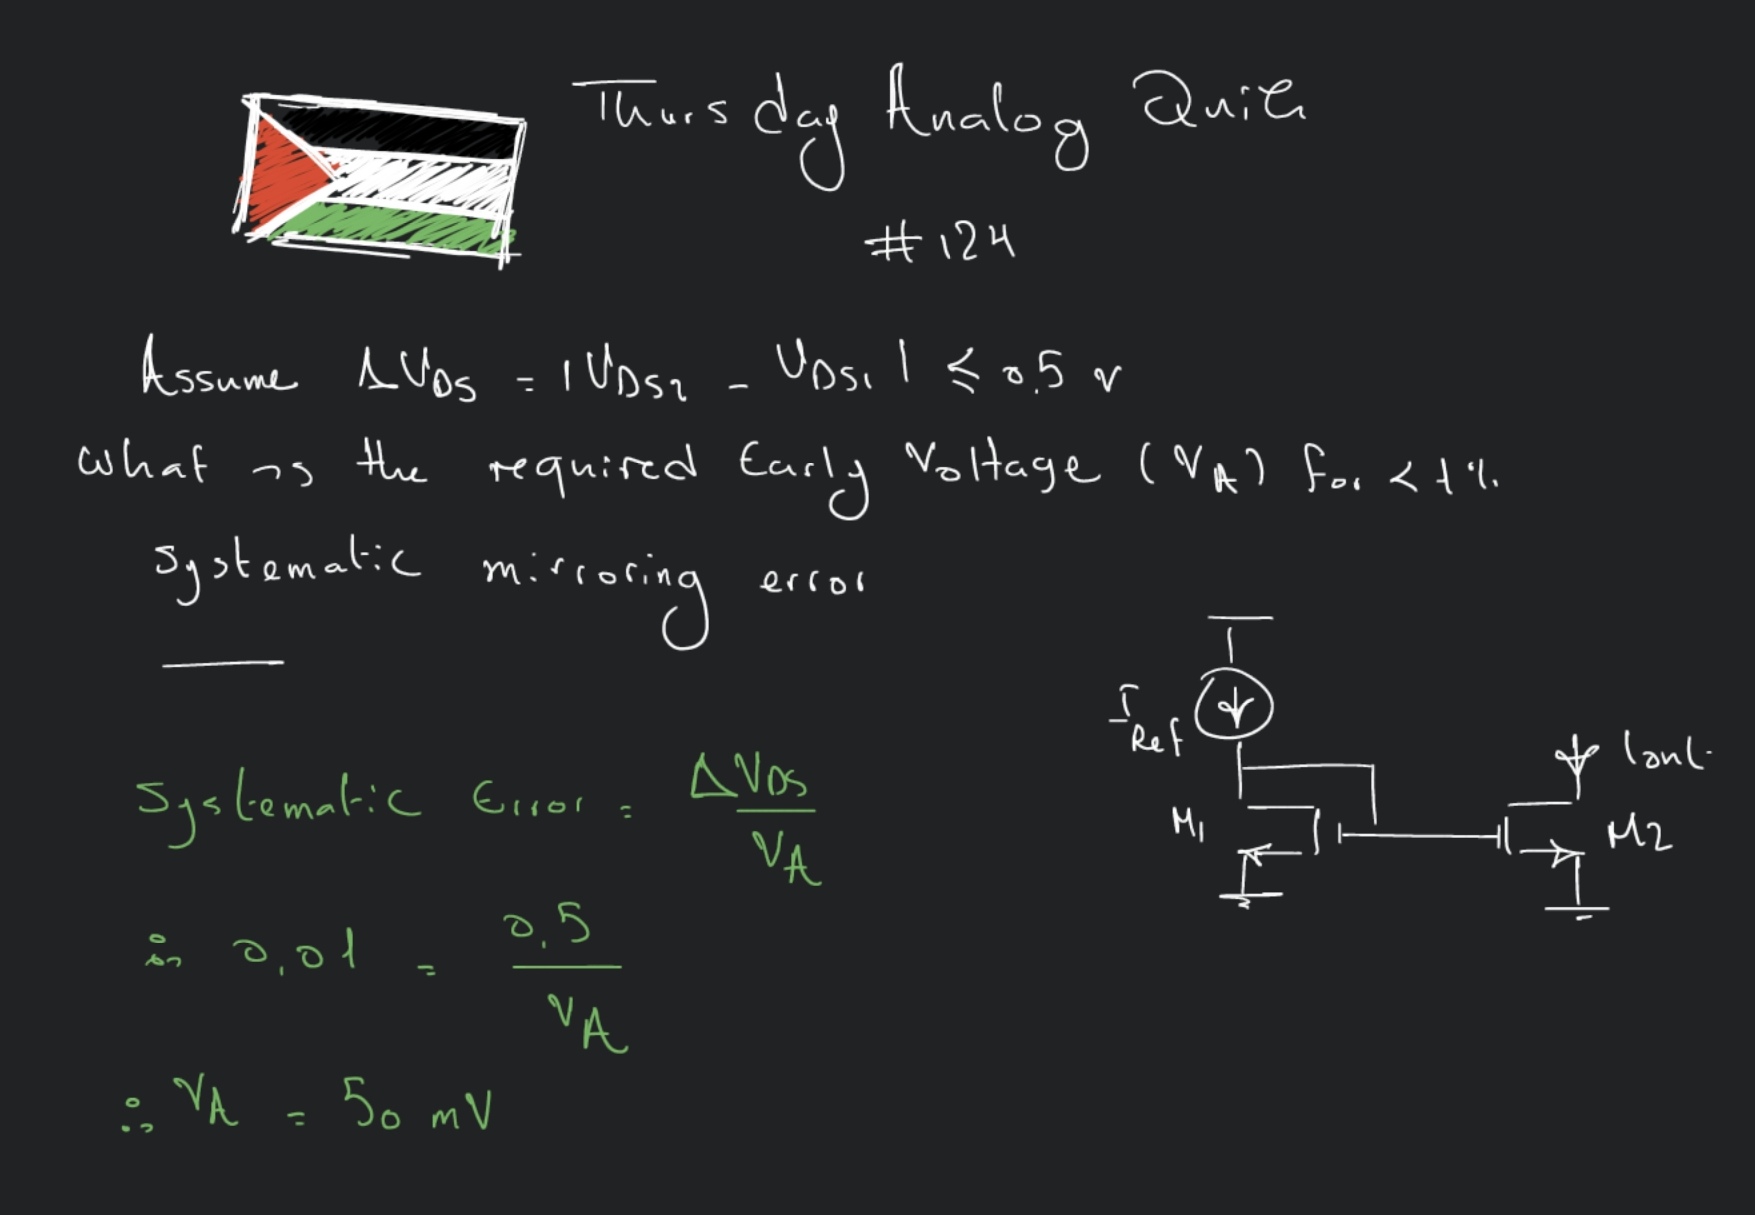 Thursday Analog Quiz
#124
Assume ΔVDS = |VDS2 - VDS1| ≤ 0.5 v
What is the required Early Voltage (VA) for < 1%
systematic mirroring error
IRef
Iout
M1
M2
Systematic Error = ΔVDS / VA
∴ 0,01 = 0,5 / VA
∴ VA = 50 mV